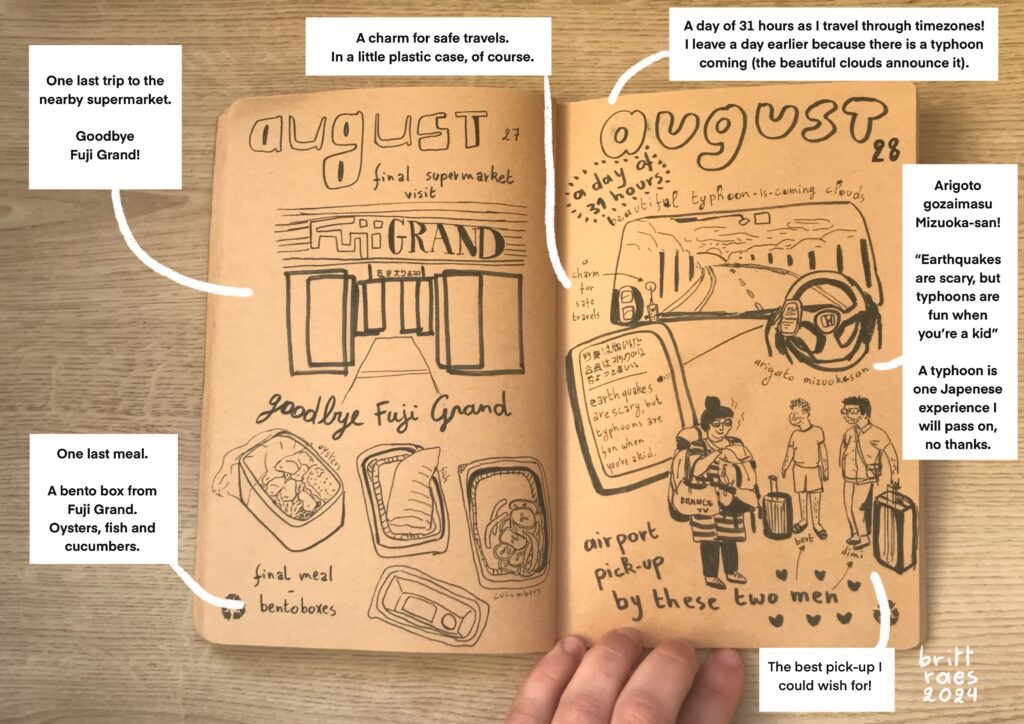 One last trip to the
nearby supermarket.
Goodbye
Fuji Grand!
A charm for safe travels.
In a little plastic case, of course.
A day of 31 hours as I travel through timezones!
I leave a day earlier because there is a typhoon
coming (the beautiful clouds announce it).
august 27
final supermarket
visit
Fuji GRAND
goodbye Fuji Grand
oysters
fish
cucumbers
final meal
-
bentoboxes
One last meal.
A bento box from
Fuji Grand.
Oysters, fish and
cucumbers.
august
28
a day of
31 hours
beautiful typhoon-is-coming clouds
a
charm
for
safe
travels
arigato mizuokasan
earthquakes
are scary, but
typhoons are
fun when
you're a kid.
FRANCE
TV
airport
pick-up
by these two men
bert
dimi
Arigoto
gozaimasu
Mizuoka-san!
“Earthquakes
are scary, but
typhoons are
fun when
you’re a kid”
A typhoon is
one Japenese
experience I
will pass on,
no thanks.
The best pick-up I
could wish for!
britt
raes
2024